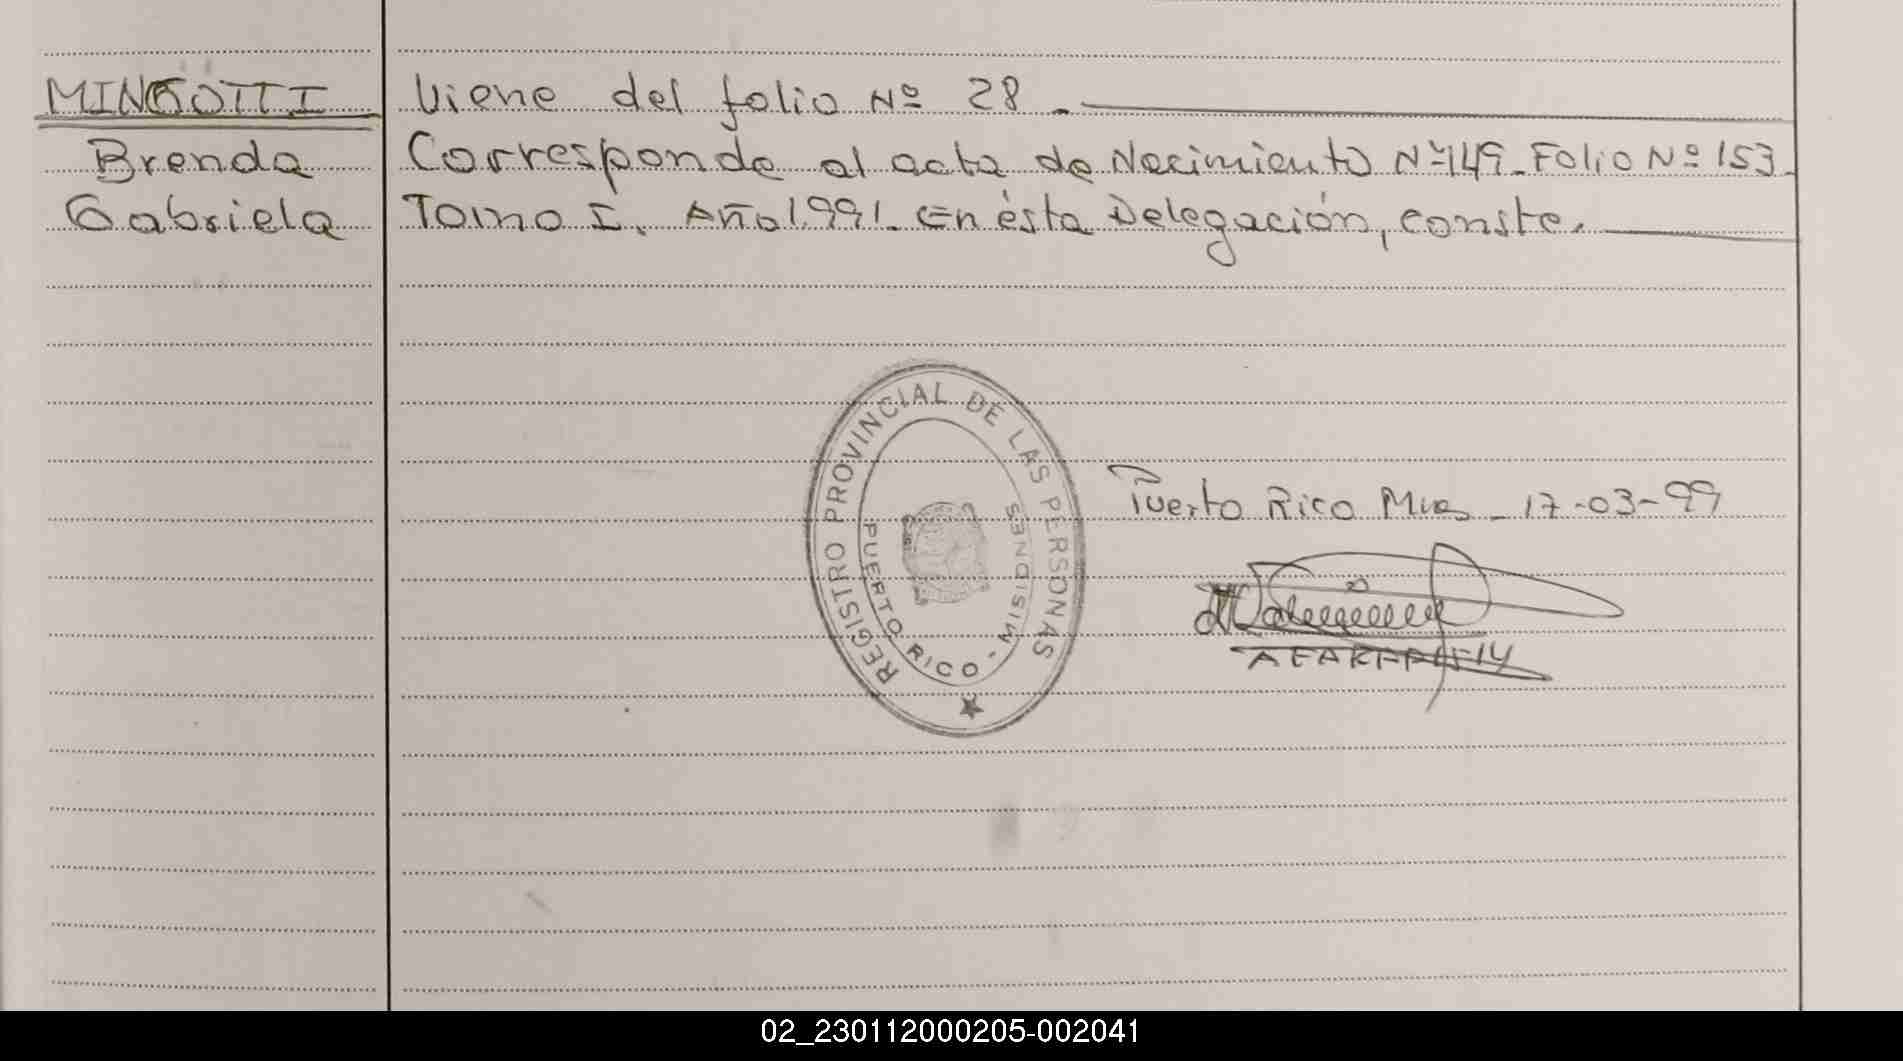 MINGOTTI
Brenda
Gabriela
Viene del folio Nº 28.
Corresponde al acta de Nacimiento Nº149. Folio Nº 153.
Tomo I. Año 1.991. En ésta Delegación, conste.
REGISTRO PROVINCIAL DE LAS PERSONAS
PUERTO RICO - MISIONES
Puerto Rico Mnes - 17-03-99
02_230112000205-002041